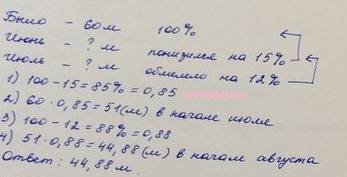 Было - 60 м 100%
Июнь - ? м понизился на 15%
Июль - ? м обмелело на 12%
1) 100 - 15 = 85% = 0,85
2) 60 · 0,85 = 51 (м) в начале июля
3) 100 - 12 = 88% = 0,88
4) 51 · 0,88 = 44,88 (м) в начале августа
Ответ: 44,88 м.